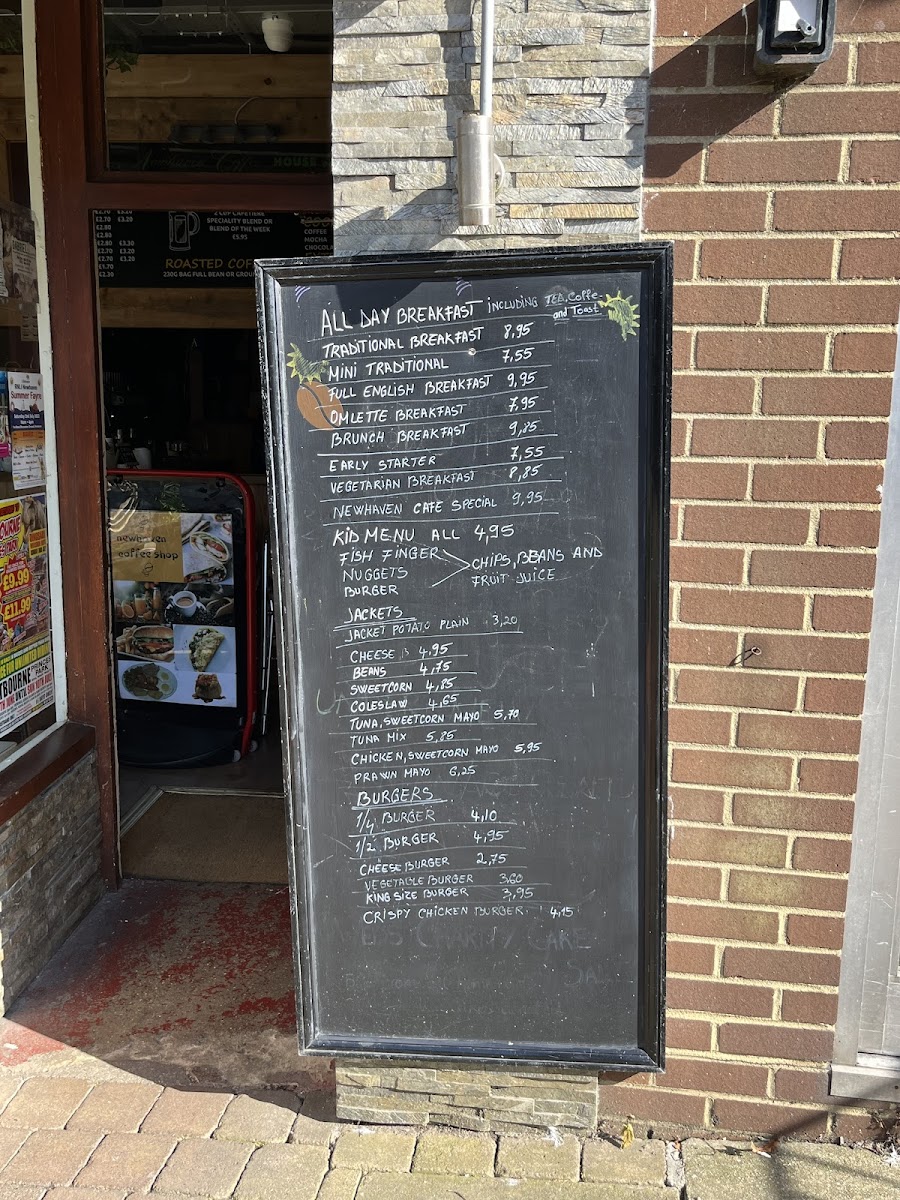 HOUSE
£2.70 £3.20
£2.70 £3.20
£2.80
£2.80 £3.30
£2.70 £3.20
£2.30
2 CUP CAFETIERE
SPECIALITY BLEND OR
BLEND OF THE WEEK
£3.95
COFFEE
MOCHA
CHOCOLA
ROASTED COF
230G BAG FULL BEAN OR GROU
ALL DAY BREAKFAST INCLUDING TEA, Coffe-
and Toast
TRADITIONAL BREAKFAST 8,95
MINI TRADITIONAL 7,55
FULL ENGLISH BREAKFAST 9,95
OMLETTE BREAKFAST 7,95
BRUNCH BREAKFAST 9,85
EARLY STARTER 7,55
VEGETARIAN BREAKFAST 8,85
NEWHAVEN CAFE SPECIAL 9,95
KID MENU ALL 4,95
FISH FINGER
NUGGETS
BURGER
CHIPS, BEANS AND
FRUIT JUICE
JACKETS
JACKET POTATO PLAIN 3,20
CHEESE 4,95
BEANS 4,75
SWEETCORN 4,85
COLESLAW 4,65
TUNA, SWEETCORN MAYO 5,70
TUNA MIX 5,85
CHICKEN, SWEETCORN MAYO 5,95
PRAWN MAYO 6,25
BURGERS
1/4 BURGER 4,10
1/2 BURGER 4,95
CHEESE BURGER 2,75
VEGETABLE BURGER 3,60
KING SIZE BURGER 3,95
CRISPY CHICKEN BURGER 4,15
CHARITY CAKE
newhaven
coffee shop
RNLI Newhaven
Summer Fayre
£9.99
£11.99